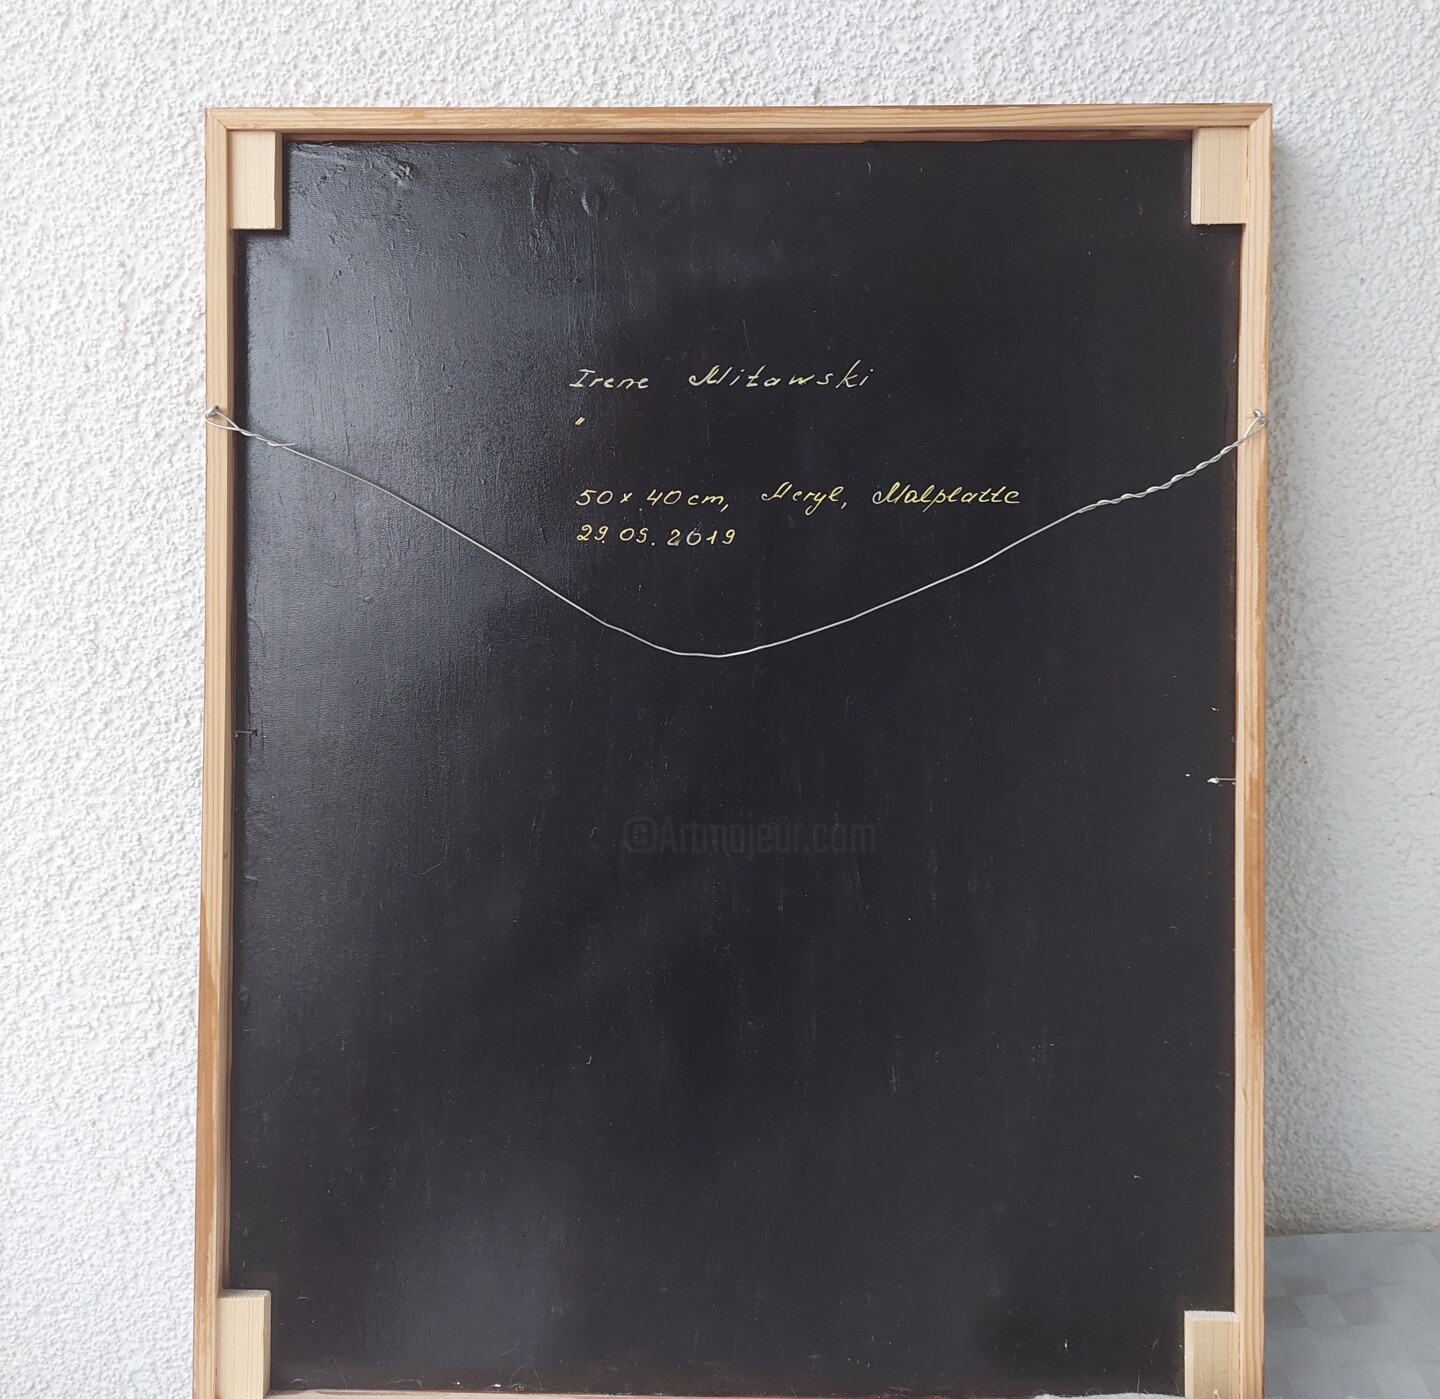 Irene Mitawski
"
50 x 40 cm, Acryl, Malplatte
29.05.2019
©Artmajeur.com